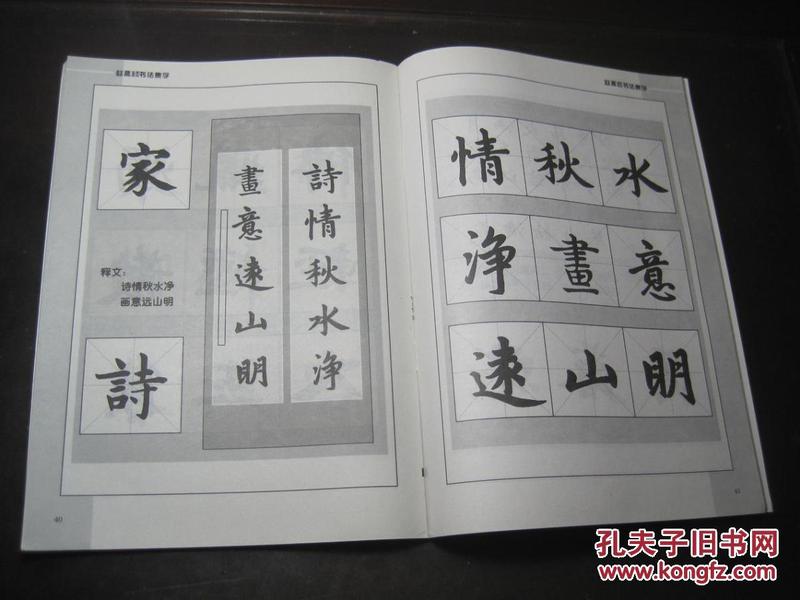 赵孟頫书法集字
家
释文：
诗情秋水净
画意远山明
詩
詩情秋水淨
畫意遠山明
40
赵孟頫书法集字
情秋水
淨畫意
遠山明
41
孔夫子旧书网
www.kongfz.com